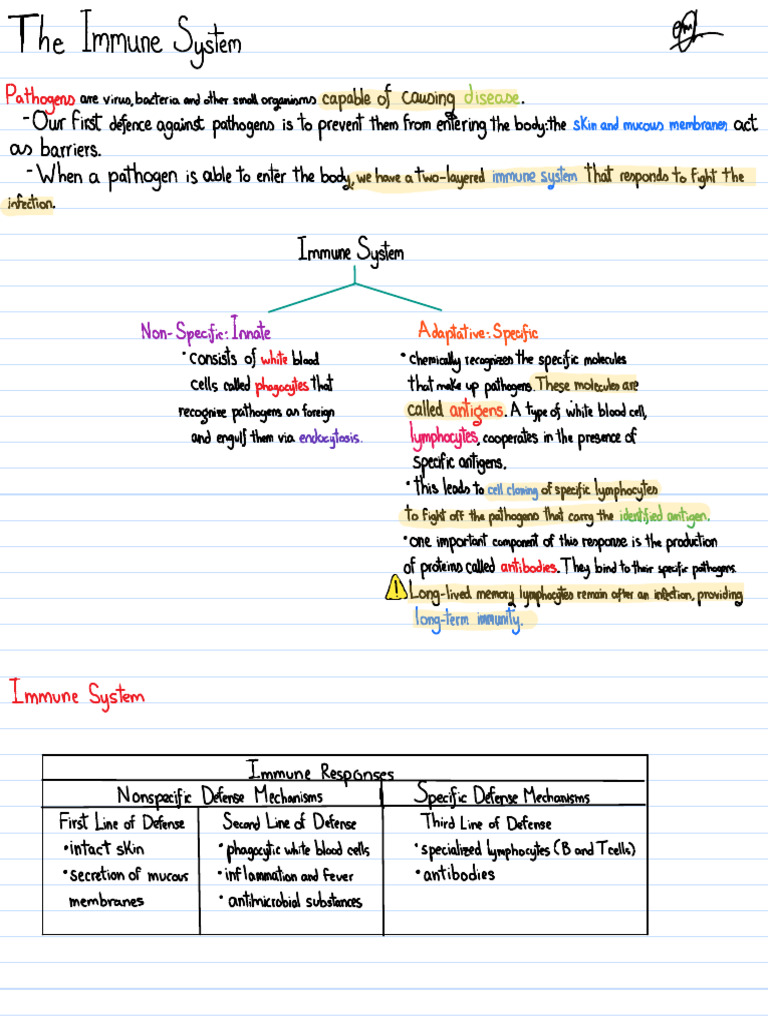 The Immune System
Pathogens are virus, bacteria and other small organisms capable of causing disease.
- Our first defence against pathogens is to prevent them from entering the body: the skin and mucous membranes act
as barriers.
- When a pathogen is able to enter the body, we have a two-layered immune system that responds to fight the
infection.
Immune System
Non-Specific: Innate
• consists of white blood
cells called phagocytes that
recognize pathogens as foreign
and engulf them via endocytosis.
Adaptative: Specific
• chemically recognizes the specific molecules
that make up pathogens. These molecules are
called antigens. A type of white blood cell,
lymphocytes, cooperates in the presence of
specific antigens.
• this leads to cell cloning of specific lymphocytes
to fight off the pathogens that carry the identified antigen.
• one important component of this response is the production
of proteins called antibodies. They bind to their specific pathogens.
! Long-lived memory lymphocytes remain after an infection, providing
long-term immunity.
Immune System
Immune Responses
Nonspecific Defense Mechanisms
Specific Defense Mechanisms
First Line of Defense
• intact skin
• secretion of mucous
membranes
Second Line of Defense
• phagocytic white blood cells
• inflammation and fever
• antimicrobial substances
Third Line of Defense
• specialized lymphocytes (B and T cells)
• antibodies